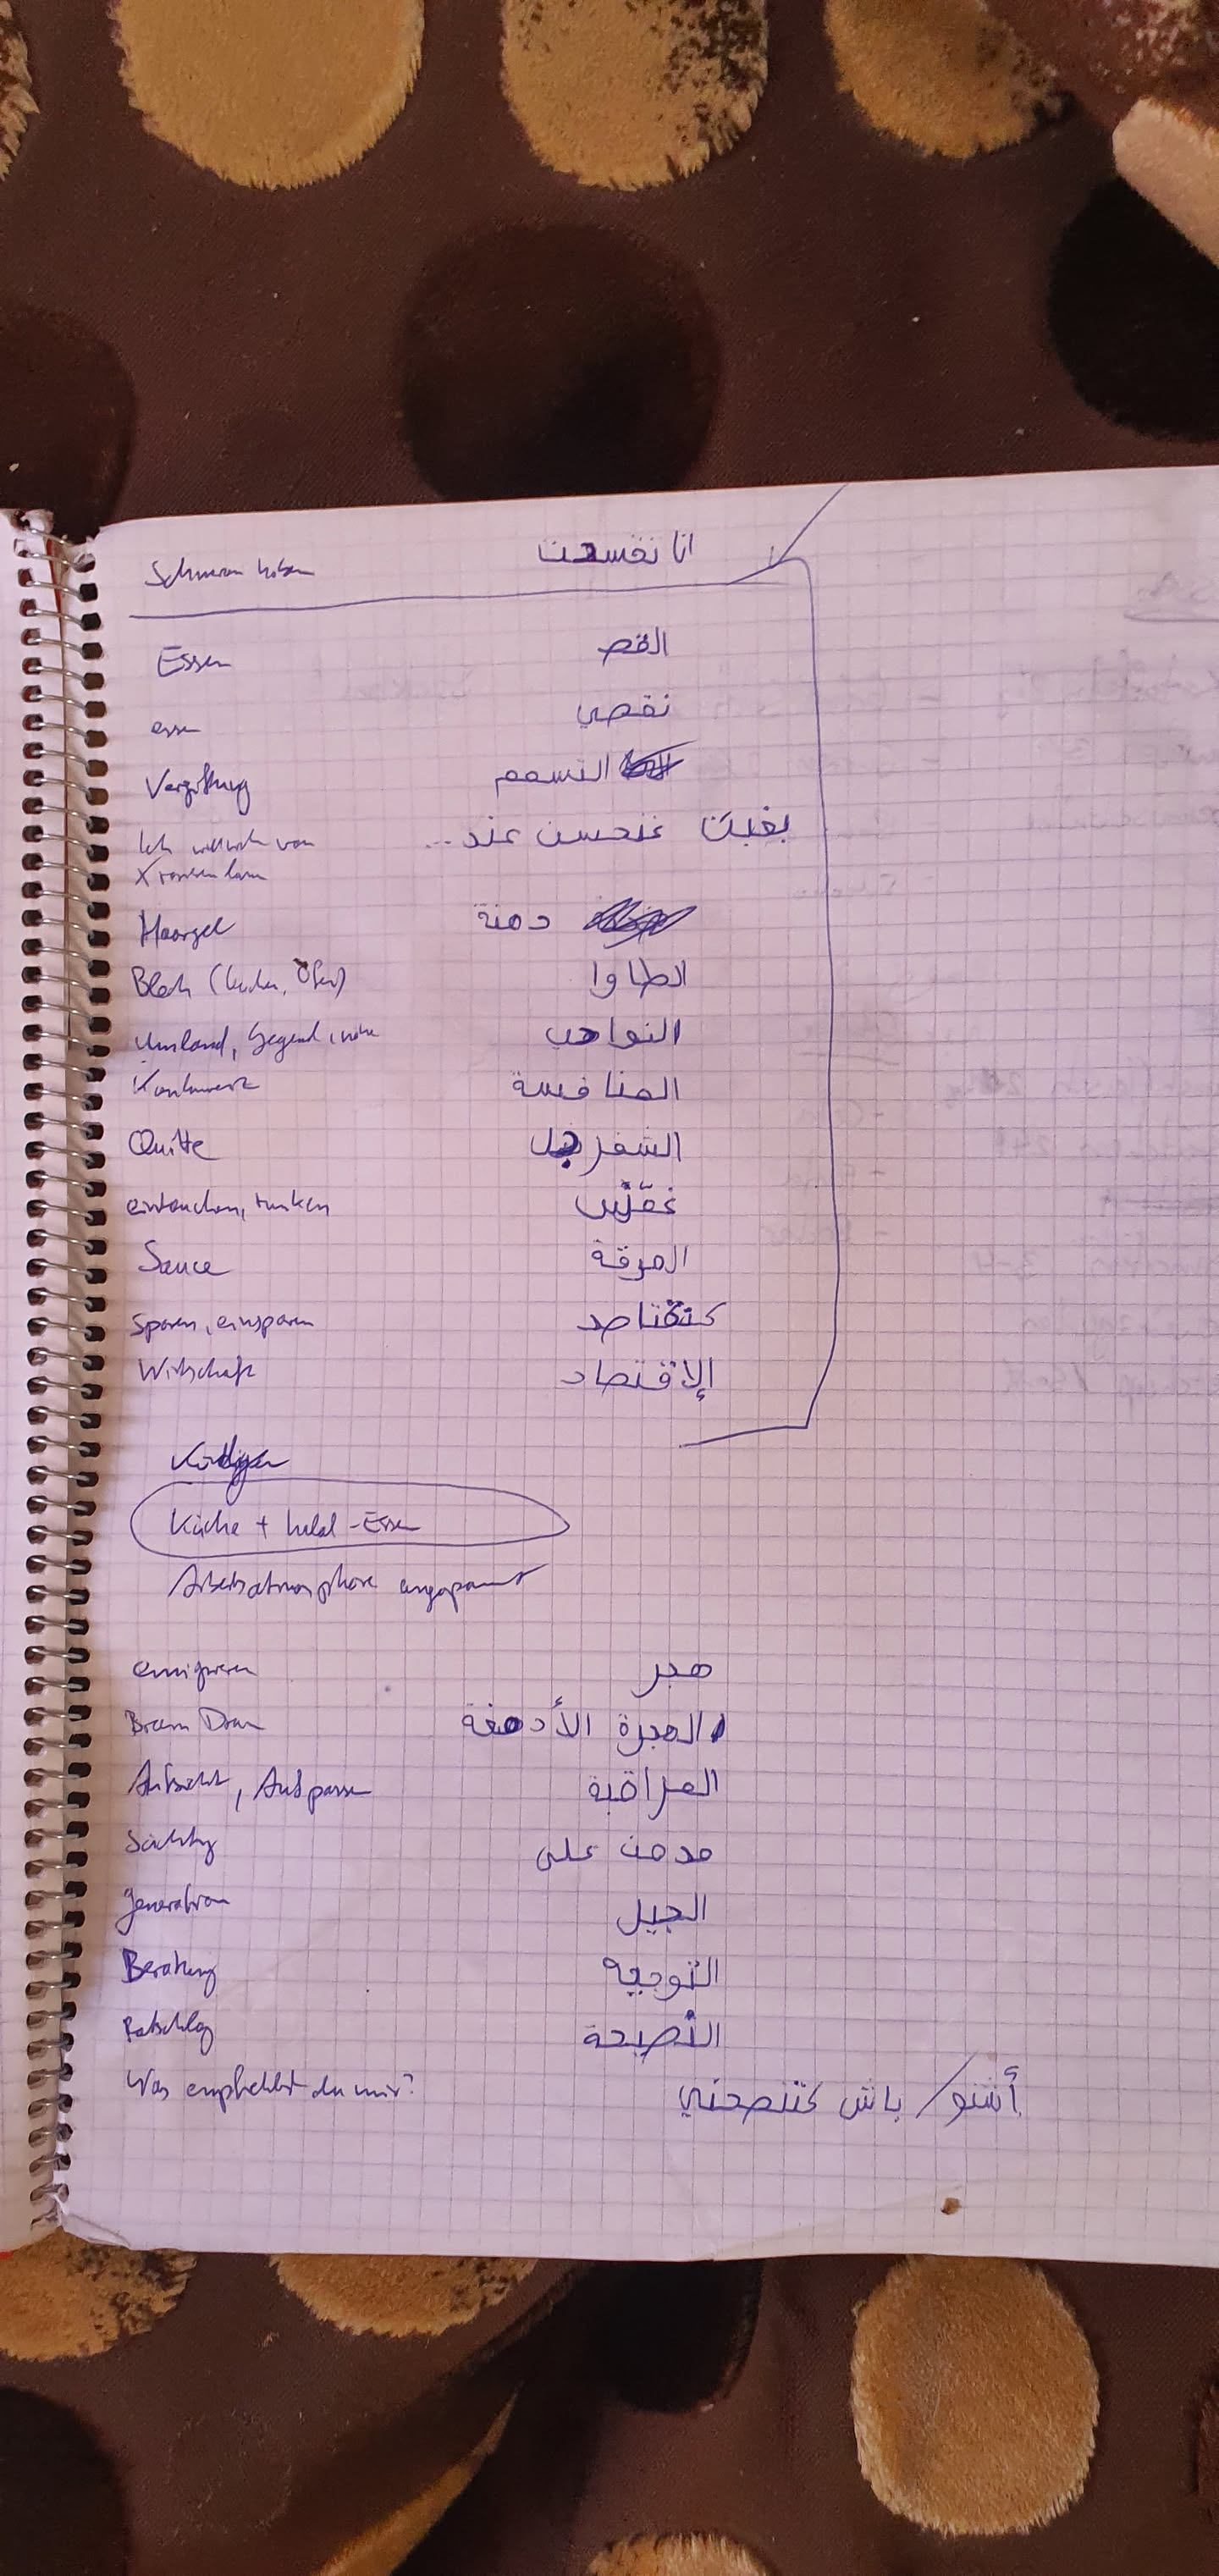 انا نفسدت
Essen القص
essen نقصي
Vergiftung التسمم
Ich will mich von بغيت غنحسن عند ...
Haargel دهنة
Blech (Kuchen, Ofen) الطاوا
Umland, Gegend, Nähe النواحي
Konkurrenz المنافسة
Quitte السفرجل
eintauchen, tunken غمّس
Sauce المرقة
sparen, einsparen كنقتاصد
Wirtschaft الإقتصاد
Küche + halal-Essen
Arbeitsatmosphäre angepasst
emigrieren هجر
Brain Drain الهجرة الأدمغة
Aufsicht, Aufpassen المراقبة
Süchtig مدمن على
Generation الجيل
Beratung التوجيه
Ratschlag النصيحة
Was empfiehlst du mir? أشنو / باش كتنصحني